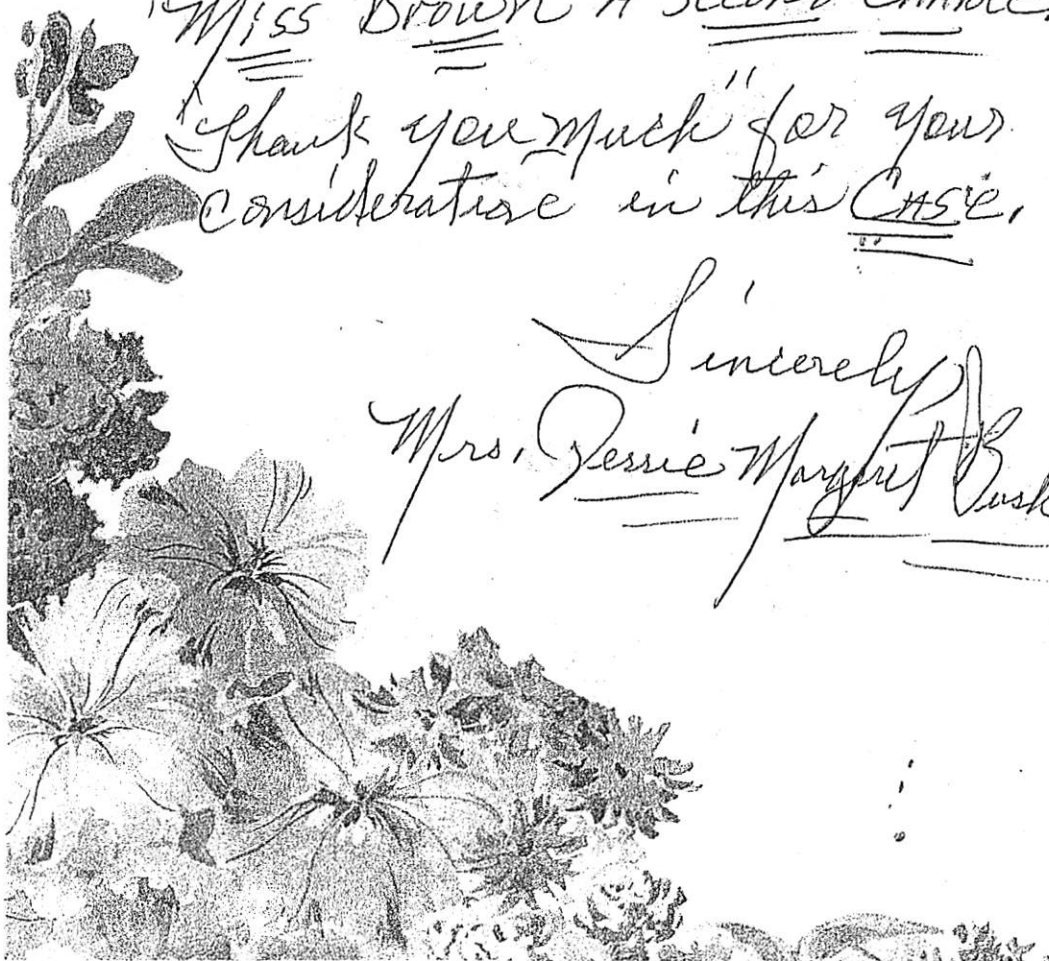 "Miss Brown A Second Chance
"Thank you Much" for your
Consideratise in this Case.
Sincerely,
Mrs. Jessie Margaret Bush